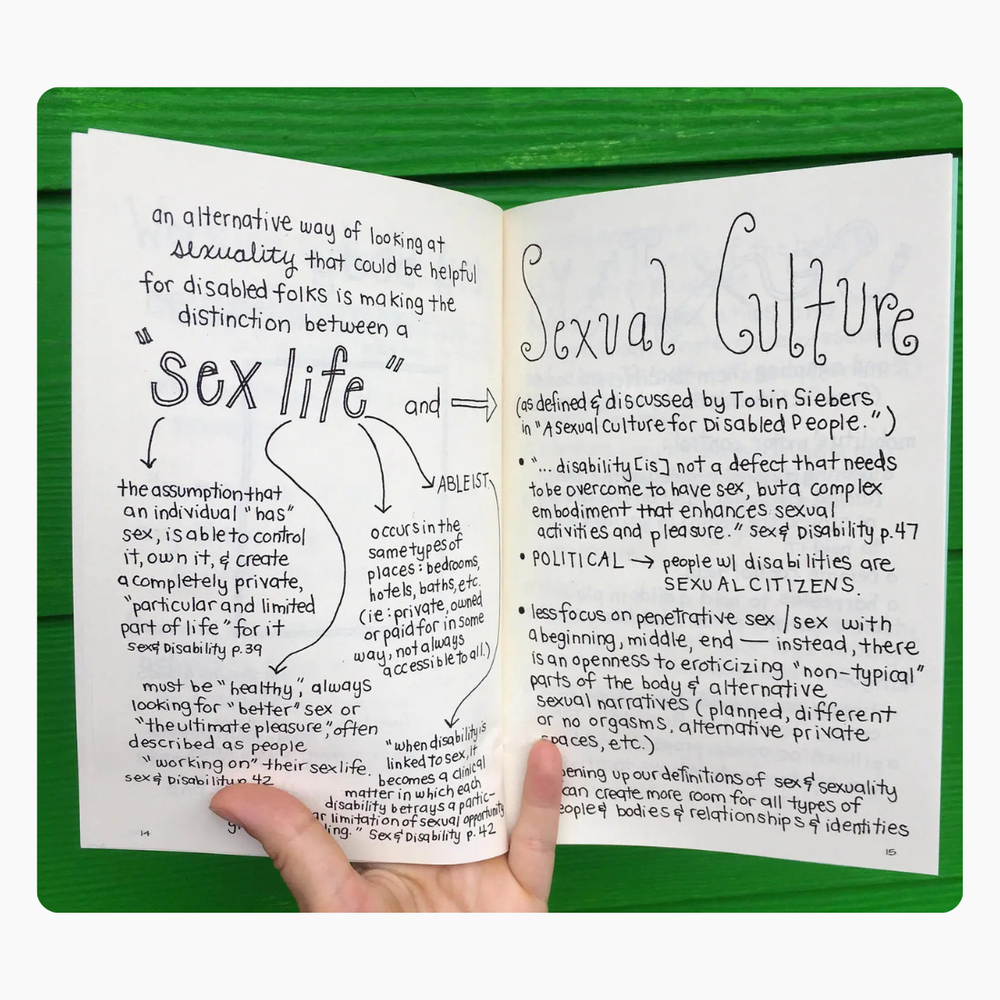 an alternative way of looking at
sexuality that could be helpful
for disabled folks is making the
distinction between a
"sex life" and →
the assumption that
an individual "has"
sex, is able to control
it, own it, & create
a completely private,
"particular and limited
part of life" for it
sex & Disability p.39
must be "healthy", always
looking for "better" sex or
"the ultimate pleasure", often
described as people
"working on" their sex life.
sex & Disability p. 42
occurs in the
same types of
places: bedrooms,
hotels, baths, etc.
(ie: private, owned
or paid for in some
way, not always
accessible to all.)
ABLEIST
"when disability is
linked to sex, it
becomes a clinical
matter in which each
disability betrays a partic-
ar limitation of sexual opportunity
ling." Sex & Disability p. 42
14
Sexual Culture
(as defined & discussed by Tobin Siebers
in "A sexual Culture for Disabled People.")
• "... disability [is] not a defect that needs
to be overcome to have sex, but a complex
embodiment that enhances sexual
activities and pleasure." sex & Disability p.47
• POLITICAL → people w/ disabilities are
SEXUAL CITIZENS.
• less focus on penetrative sex / sex with
a beginning, middle, end — instead, there
is an openness to eroticizing "non-typical"
parts of the body & alternative
sexual narratives (planned, different
or no orgasms, alternative private
spaces, etc.)
pening up our definitions of sex & sexuality
can create more room for all types of
eople & bodies & relationships & identities
15